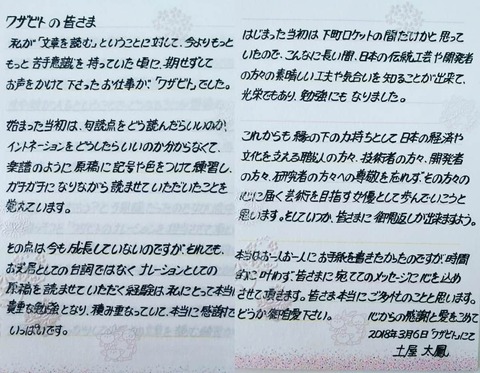 ワザビトの皆さま
私が「文章を読む」ということに対して、今よりもっと
もっと苦手意識を持っていた頃に、期せずして
お声をかけて下さったお仕事が、「ワザビト」でした。
始まった当初は、句読点をどう読んだらいいのか、
イントネーションをどうしたらいいのか分からなくて、
楽譜のように原稿に記号や色をつけて練習し、
ガチガチになりながら読ませていただいたことを
覚えています。
その点は今も成長していないのですが、それでも、
お芝居としての台詞ではなくナレーションとしての
原稿を読ませていただく経験は、私にとって本当に
貴重な勉強となり、積み重なっていて、本当に感謝で
いっぱいです。
はじまった当初は下町ロケットの間だけかと思って
いたので、こんなに長い間、日本の伝統工芸や開発者
の方々の素晴しい工夫や気合いを知ることが出来て、
光栄でもあり、勉強にもなりました。
これからも縁の下の力持ちとして日本の経済や
文化を立える職人の方々、技術者の方々、開発者
の方々、研究者の方々への尊敬を忘れず、その方々の
心に届く芸術を目指す女優として歩んでいこうと
思います。そしていつか、皆さまに御恩返しが出来ますよう。
本当はお一人お一人にお手紙を書きたかったのですが、時間
的に叶わず、皆さまに宛ててのメッセージに心を込め
させて頂きます。皆さま本当にご多忙のことと思います。
どうか御自愛下さい。
心からの感謝と愛をこめて
2018年3月6日「ワザビト」にて
土屋太鳳